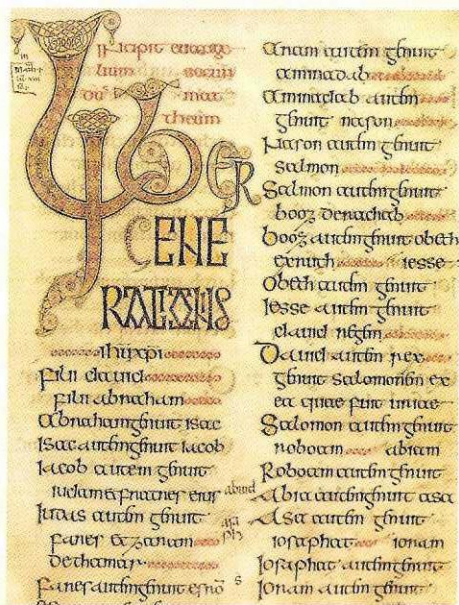 Incipit euange
lium secun
dū mat
theum
Liber
GENE
RATIONIS
ihu xpi
filii dauid
filii abracham
Abracham genuit isac
Isac autem genuit iacob
Iacob autem genuit
iudam et fratres eius
Iudas autem genuit
fares et zaram
dethamar
Fares autem genuit esrō
Aram autem genuit
aminadab
Aminadab autem
genuit nason
Nason autem genuit
salmon
Salmon autem genuit
booz derachab
booz autem genuit obeth
exruth iesse
Obeth autem genuit
Iesse autem genuit
dauid regem
Dauid autem rex
genuit salomonem ex
ea quae fuit uriae
Salomon autem genuit
roboam abiam
Roboam autem genuit
Abia autem genuit asa
Asa autem genuit
iosaphat ioram
Iosaphat autem genuit
Ioram autem genuit